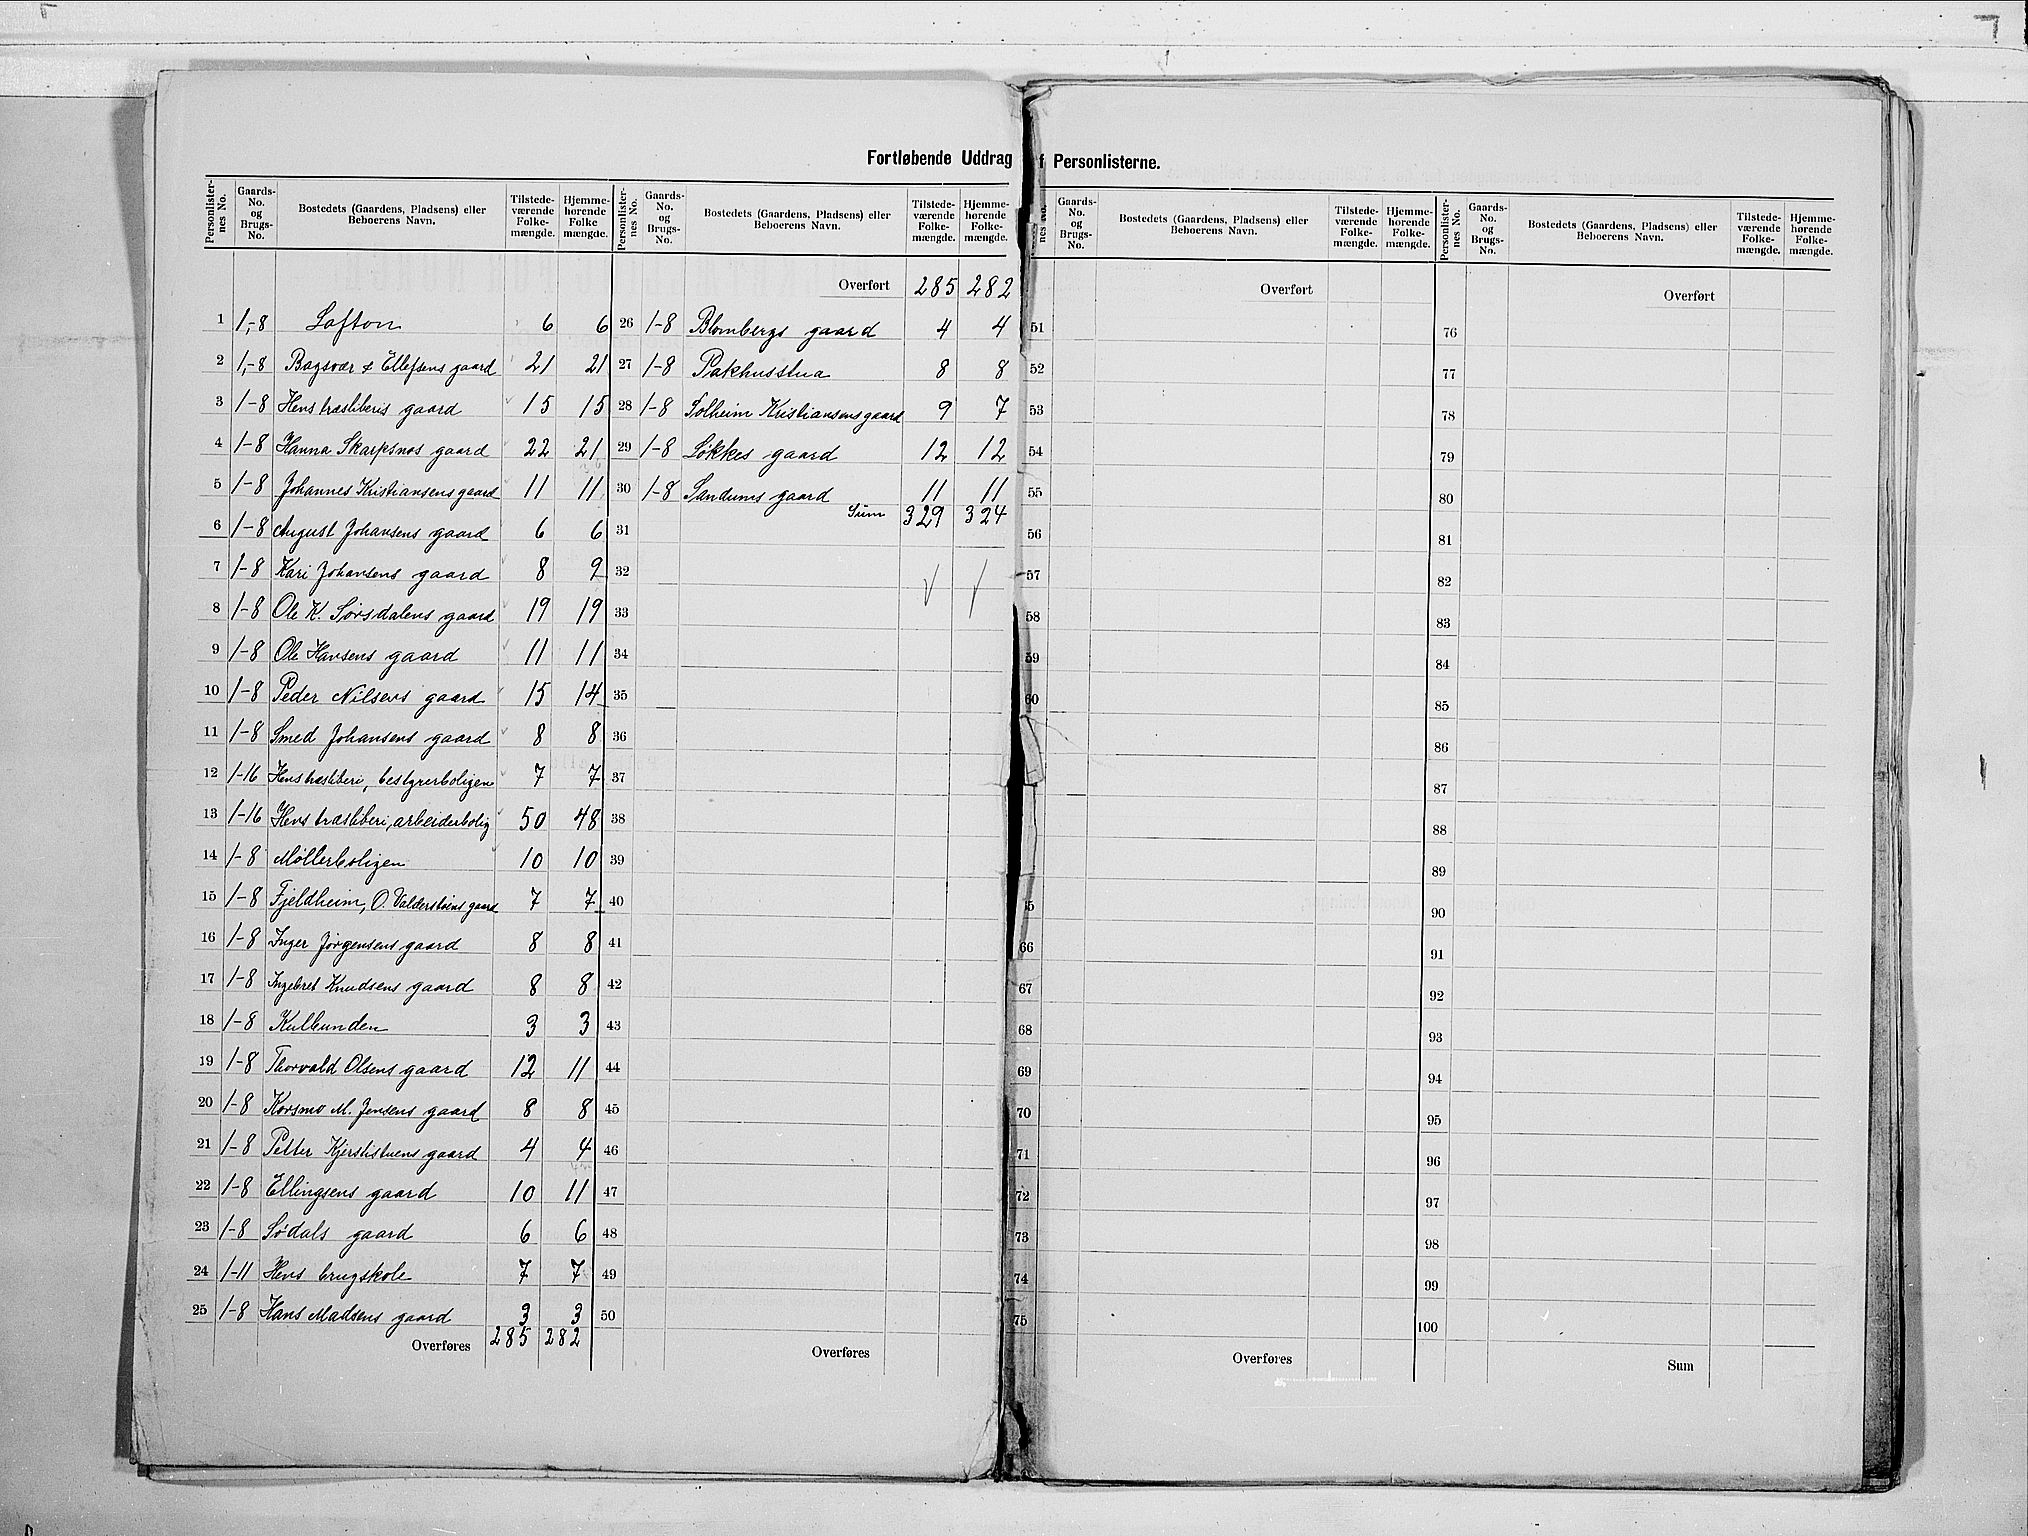 Fortløbende Uddrag f Personlisterne.
Personlister-nes No. | Gaards-No. og Brugs-No. | Bostedets (Gaardens, Pladsens) eller Beboerens Navn. | Tilstede-værende Folke-mængde. | Hjemme-hørende Folke mængde.
1 1,-8 Lofton 6 6
2 1,-8 Bagsvær & Ellefsens gaard 21 21
3 1-8 Hens træsliberis gaard 15 15
4 1-8 Hanna Skarpsnos gaard 22 21
5 1-8 Johannes Kristiansens gaard 11 11
6 1-8 August Johansens gaard 6 6
7 1-8 Kari Johansens gaard 8 9
8 1-8 Ole K. Sørsdalens gaard 19 19
9 1-8 Ole Hansens gaard 11 11
10 1-8 Peder Nilsens gaard 15 14
11 1-8 Smed Johansens gaard 8 8
12 1-16 Hens træsliberi, bestyrerboligen 7 7
13 1-16 Hens træsliberi, arbeiderbolig 50 48
14 1-8 Møllerboligen 10 10
15 1-8 Fjeldheim, O. Valderstøins gaard 7 7
16 1-8 Inger Jørgensens gaard 8 8
17 1-8 Ingebret Knudsens gaard 8 8
18 1-8 Kullunden 3 3
19 1-8 Thorvald Olsens gaard 12 11
20 1-8 Korsmo M. Jensens gaard 8 8
21 1-8 Petter Kjerstistuens gaard 4 4
22 1-8 Ellingsens gaard 10 11
23 1-8 Sødals gaard 6 6
24 1-11 Hens brugskole 7 7
25 1-8 Hans Madsens gaard 3 3
Overføres 285 282
Personlister-nes No. | Gaards-No. og Brugs-No. | Bostedets (Gaardens, Pladsens) eller Beboerens Navn. | Tilstede-værende Folke-mængde. | Hjemme-hørende Folke-mængde.
Overført 285 282
26 1-8 Blombergs gaard 4 4
27 1-8 Pakhusstua 8 8
28 1-8 Solheim Kristiansens gaard 9 7
29 1-8 Løkkes gaard 12 12
30 1-8 Sandums gaard 11 11
Sum 329 324
31
32
33
34
35
36
37
38
39
40
41
42
43
44
45
46
47
48
49
50
Overføres
nes No. | Gaards-No. og Brugs-No. | Bostedets (Gaardens, Pladsens) eller Beboerens Navn. | Tilstede-værende Folke-mængde. | Hjemme-hørende Folke-mængde.
Overført
51
52
53
54
55
56
57
58
59
60
5
66
67
68
69
70
71
72
73
74
75
Overføres
Personlister-nes No. | Gaards-No. og Brugs-No. | Bostedets (Gaardens, Pladsens) eller Beboerens Navn. | Tilstede-værende Folke-mængde. | Hjemme-hørende Folke-mængde.
Overført
76
77
78
79
80
81
82
83
84
85
86
87
88
89
90
91
92
93
94
95
96
97
98
99
100
Sum